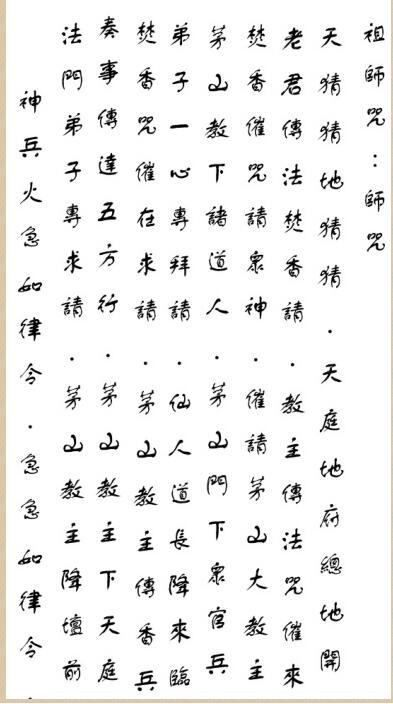 祖師咒：師咒
天猜猜地猜猜．天庭地府總地開
老君傳法焚香請．教主傳法咒催來
焚香催咒請眾神．催請茅山大教主
茅山教下諸道人．茅山門下眾官兵
弟子一心專拜請．仙人道長降來臨
焚香咒催在求請．茅山教主傳香兵
奏事傳達五方行．茅山教主下天庭
法門弟子專求請．茅山教主降壇前
神兵火急如律令．急急如律令．